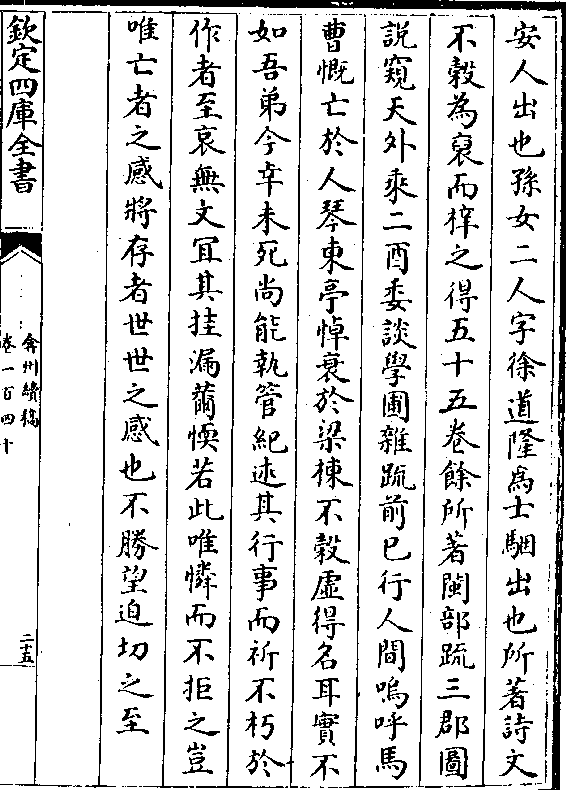 安人出也孫女二人字徐道隆為士駰出也所著詩文
不榖為裒而梓之得五十五卷餘所著閩部疏三郡圖
說窺天外乘二酉委談學圃雜疏前已行人間嗚呼馬
曹慨亡於人琴東亭悼衰於梁棟不榖虛得名耳實不
如吾弟今幸未死尚能執管紀述其行事而祈不朽於
作者至哀無文冝其挂漏薾愞若此唯憐而不拒之豈
唯亡者之感將存者世世之感也不勝望迫切之至
欽定四庫全書
弇州續稿
卷一百四十
二十五